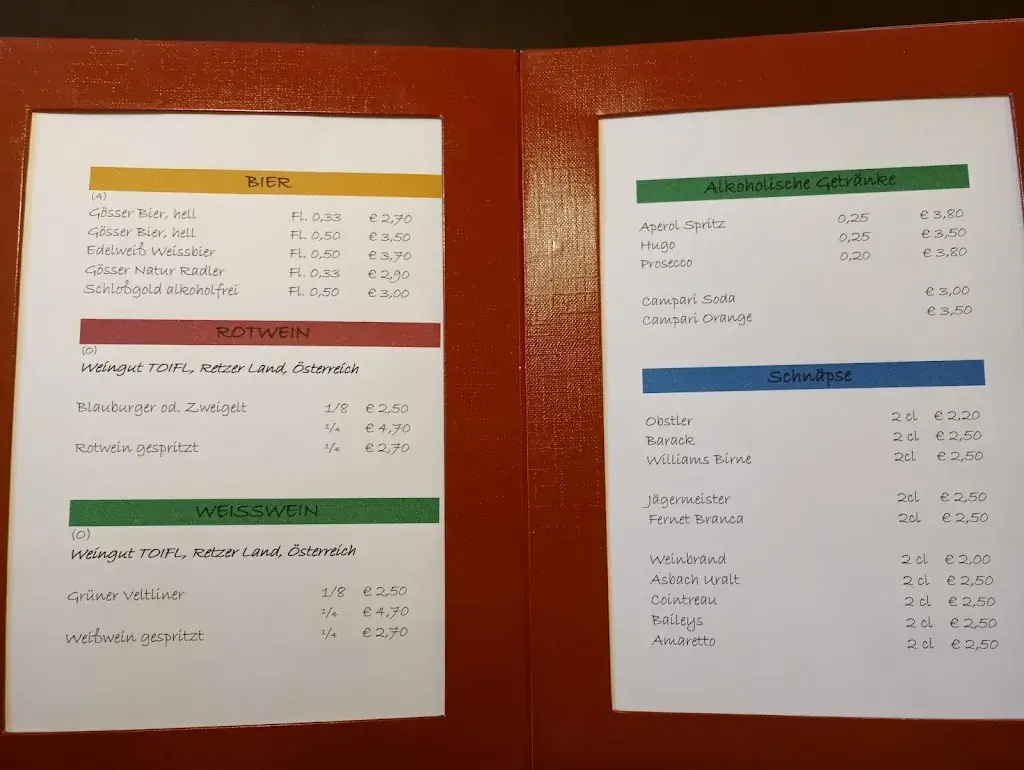 BIER
(A)
Gösser Bier, hell Fl. 0,33 € 2,70
Gösser Bier, hell Fl. 0,50 € 3,50
Edelweiß Weissbier Fl. 0,50 € 3,70
Gösser Natur Radler Fl. 0,33 € 2,90
Schloßgold alkoholfrei Fl. 0,50 € 3,00
ROTWEIN
(O)
Weingut TOIFL, Retzer Land, Österreich
Blauburger od. Zweigelt 1/8 € 2,50
1/4 € 4,70
Rotwein gespritzt 1/4 € 2,70
WEISSWEIN
(O)
Weingut TOIFL, Retzer Land, Österreich
Grüner Veltliner 1/8 € 2,50
1/4 € 4,70
Weißwein gespritzt 1/4 € 2,70
Alkoholische Getränke
Aperol Spritz 0,25 € 3,80
Hugo 0,25 € 3,50
Prosecco 0,20 € 3,80
Campari Soda € 3,00
Campari Orange € 3,50
Schnäpse
Obstler 2 cl € 2,20
Barack 2 cl € 2,50
Williams Birne 2cl € 2,50
Jägermeister 2cl € 2,50
Fernet Branca 2cl € 2,50
Weinbrand 2 cl € 2,00
Asbach Uralt 2 cl € 2,50
Cointreau 2 cl € 2,50
Baileys 2 cl € 2,50
Amaretto 2 cl € 2,50